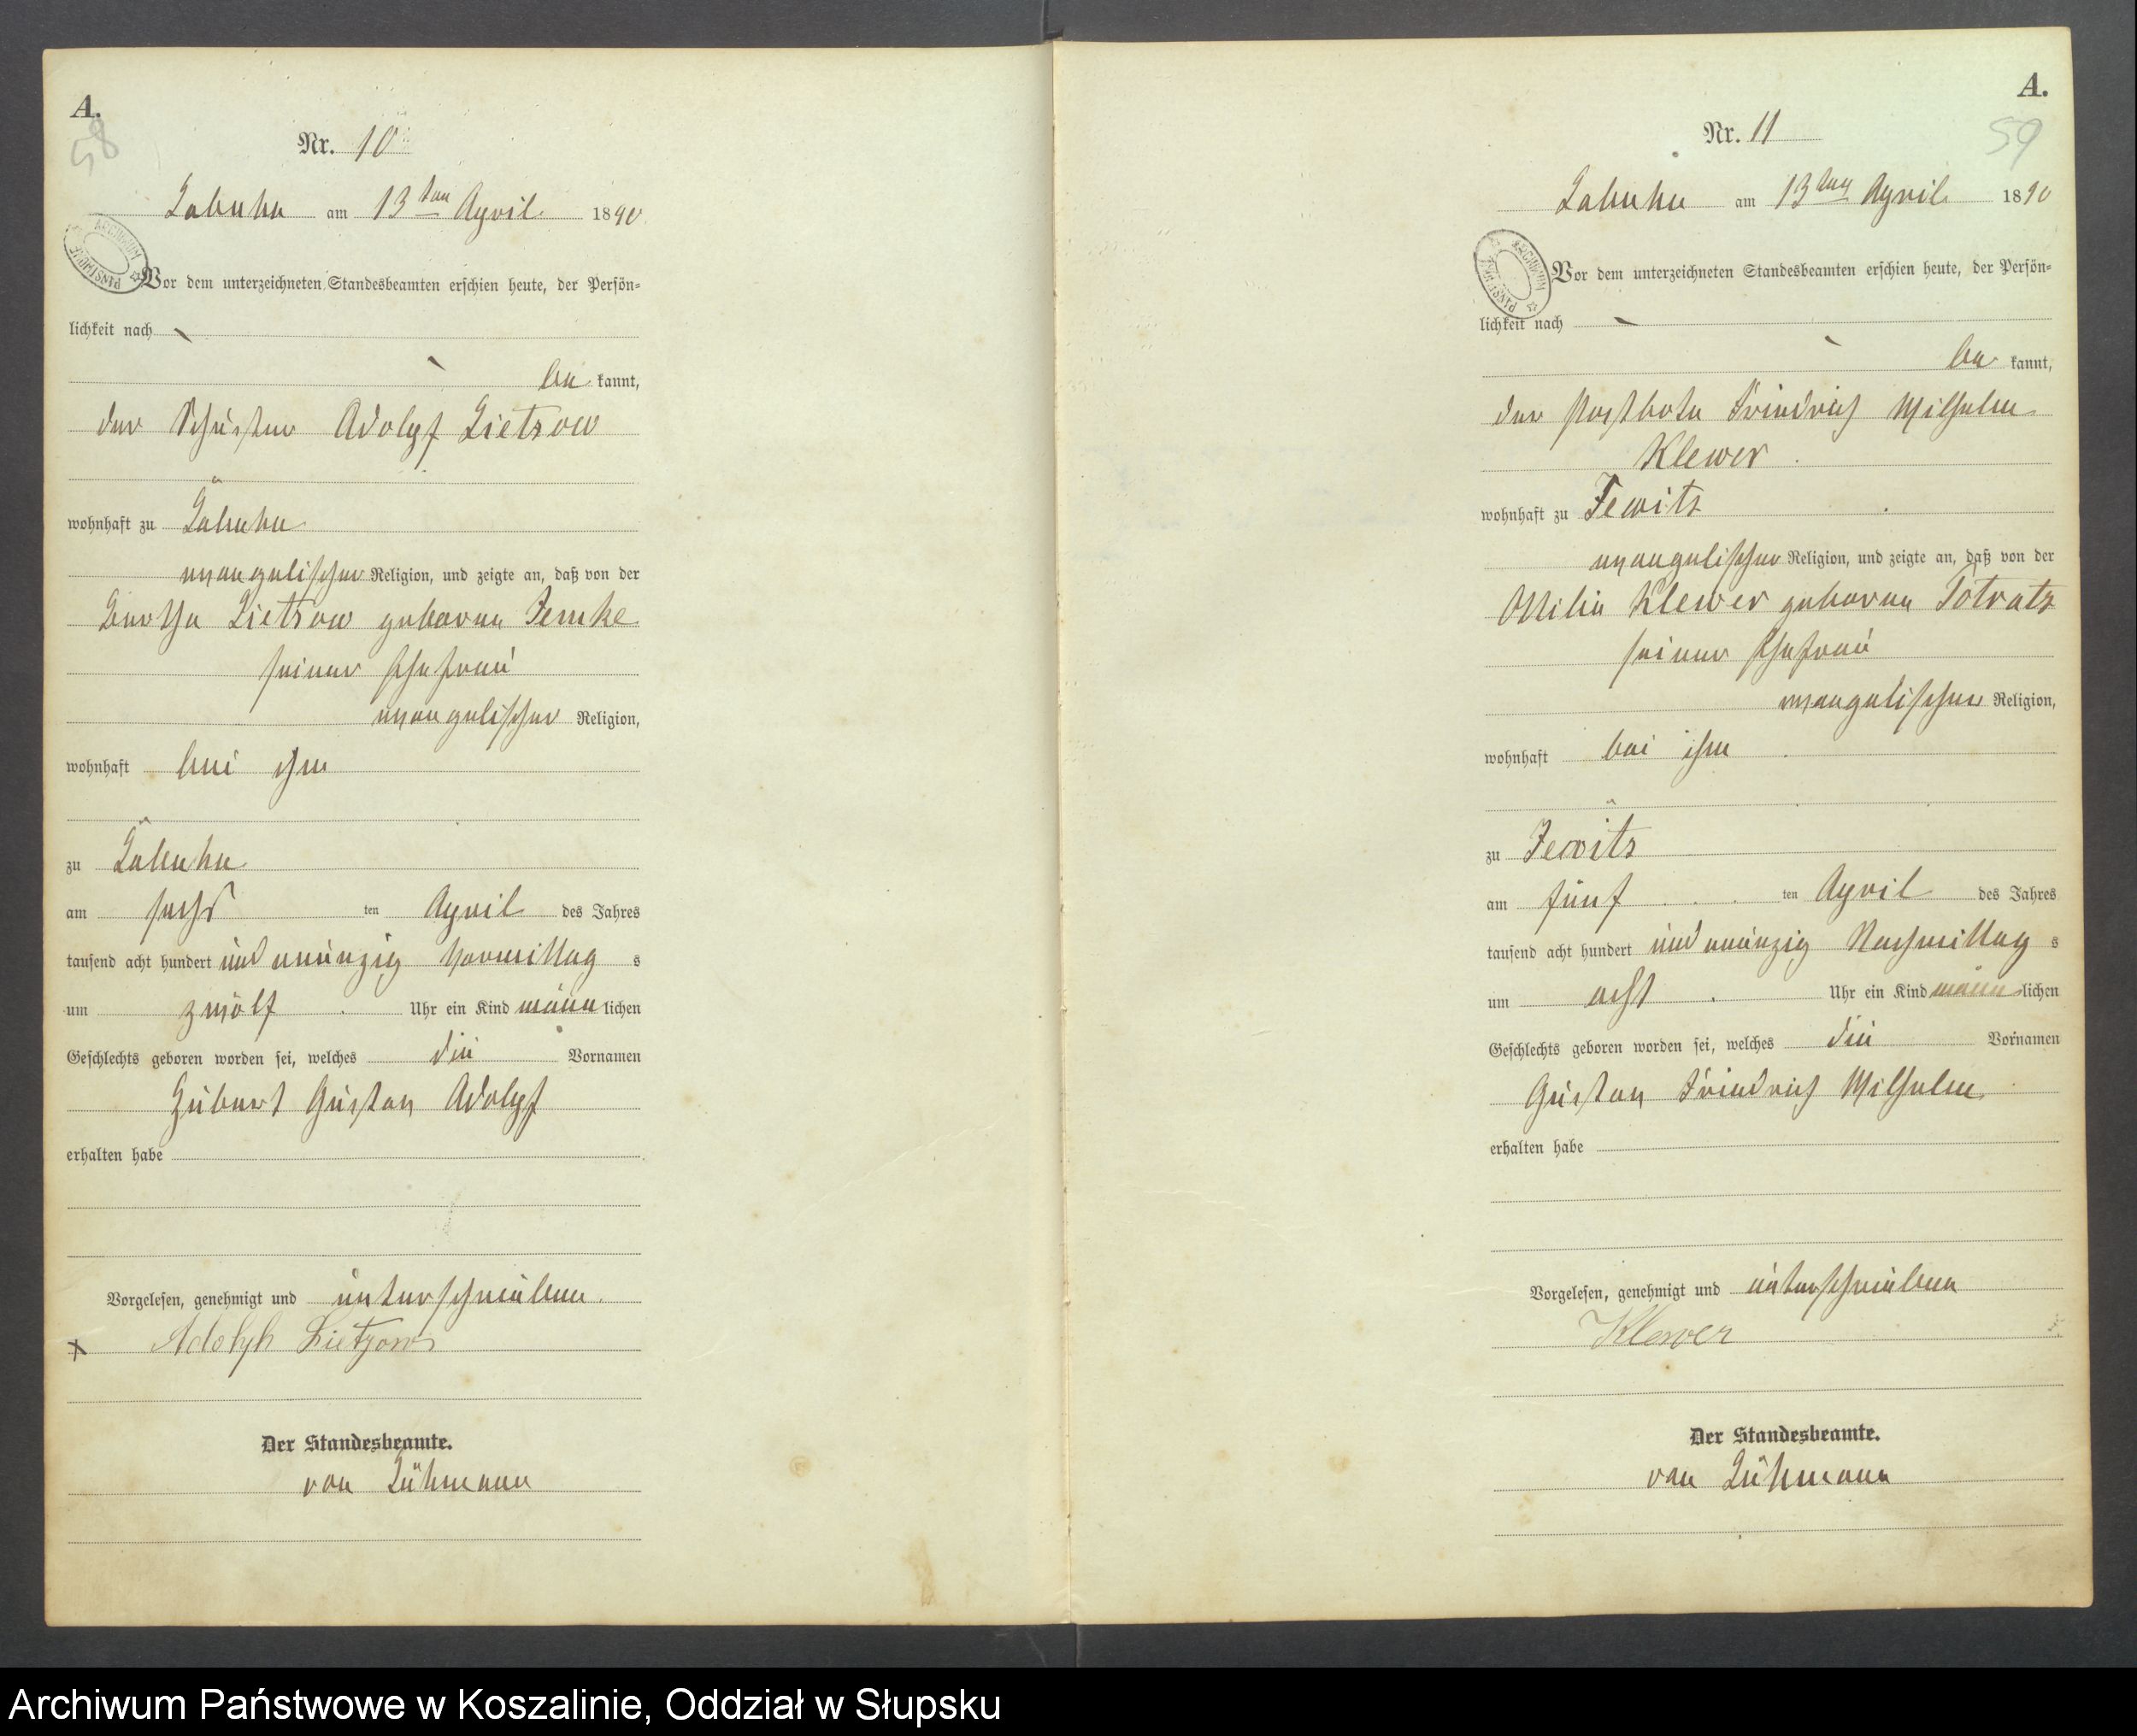 A.
58
Nr. 10
Labuhn am 13ten April 1890
Vor dem unterzeichneten Standesbeamten erschien heute, der Persön=
lichkeit nach
be kannt,
der Schuster Adolpf Lietzow
wohnhaft zu Labuhn
evangelischer Religion, und zeigte an, daß von der
Bertha Lietzow geboren Jemke
seiner Ehefrau
evangelischer Religion,
wohnhaft bei ihm
zu Labuhn
am sechs ten April des Jahres
tausend acht hundert und neunzig Vormittag s
um zwölf Uhr ein Kind männ lichen
Geschlechts geboren worden sei, welches die Vornamen
Hubert Gustav Adolpf
erhalten habe
Vorgelesen, genehmigt und unterschrieben.
Adolph Lietzow
Der Standesbeamte.
von Lühmann
A.
59
Nr. 11
Labuhn am 13ten April 1890
ARCHIWUM PAŃSTWOWE
Vor dem unterzeichneten Standesbeamten erschien heute, der Persön=
lichkeit nach
be kannt,
der Postbote Friedrich Wilhelm
Klewer
wohnhaft zu Jewitz
evangelischer Religion, und zeigte an, daß von der
Ottilie Klewer geboren Totratz
seiner Ehefrau
evangelischer Religion,
wohnhaft bei ihm
zu Jewitz
am fünf ten April des Jahres
tausend acht hundert und neunzig Nachmittag s
um acht Uhr ein Kind männ lichen
Geschlechts geboren worden sei, welches die Vornamen
Gustav Friedrich Wilhelm
erhalten habe
Vorgelesen, genehmigt und unterschrieben
Klewer
Der Standesbeamte.
von Lühmann
Archiwum Państwowe w Koszalinie, Oddział w Słupsku